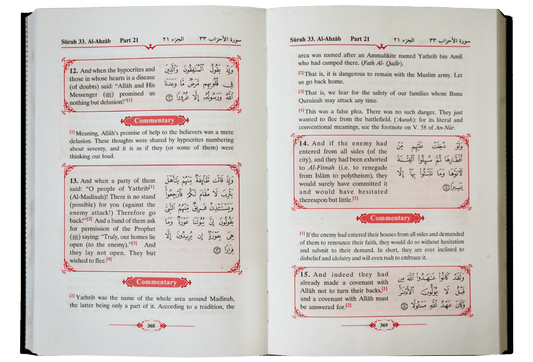 Sûrah 33. Al-Ahzâb Part 21 الجزء ٢١ سورة الأحزاب ٣٣
12. And when the hypocrites and
those in whose hearts is a disease
(of doubts) said: "Allâh and His
Messenger (ﷺ) promised us
nothing but delusion!"[1]
وَإِذْ يَقُولُ الْمُنَافِقُونَ وَالَّذِينَ
فِي قُلُوبِهِم مَّرَضٌ مَّا وَعَدَنَا
اللَّهُ وَرَسُولُهُ إِلَّا غُرُورًا
Commentary
[1] Meaning, Allâh's promise of help to the believers was a mere
delusion. These thoughts were shared by hypocrites numbering
about seventy, and it is as if they (or some of them) were
thinking out loud.
13. And when a party of them
said: "O people of Yathrib[1]
(Al-Madinah)! There is no stand
(possible) for you (against the
enemy attack!) Therefore go
back!"[2] And a band of them ask
for permission of the Prophet
(ﷺ) saying: "Truly, our homes lie
open (to the enemy)."[3] And
they lay not open. They but
wished to flee.[4]
وَإِذْ قَالَت طَّائِفَةٌ مِّنْهُمْ يَا أَهْلَ
يَثْرِبَ لَا مُقَامَ لَكُمْ فَارْجِعُوا
وَيَسْتَأْذِنُ فَرِيقٌ مِّنْهُمُ النَّبِيَّ
يَقُولُونَ إِنَّ بُيُوتَنَا عَوْرَةٌ وَمَا
هِيَ بِعَوْرَةٍ إِن يُرِيدُونَ إِلَّا
فِرَارًا
Commentary
[1] Yathrib was the name of the whole area around Madinah,
the latter being only a part of it. According to a tradition, the
368
Sûrah 33. Al-Ahzâb Part 21 الجزء ٢١ سورة الأحزاب ٣٣
area was named after an Ammalikite named Yathrib bin Amil
who had camped there. (Fath Al- Qadir).
[2] That is, it is dangerous to remain with the Muslim army. Let
us go back home.
[3] That is, we fear for the safety of our families whom Banu
Quraizah may attack any time.
[4] This was a false plea. There was no such danger. They just
wanted to flee from the battlefield. (Awrah): for its literal and
conventional meanings, see the footnote on V. 58 of An-Nûr.
14. And if the enemy had
entered from all sides (of the
city), and they had been exhorted
to Al-Fitnah (i.e. to renegade
from Islâm to polytheism), they
would surely have committed it
and would have hesitated
thereupon but little.[1]
وَلَوْ دُخِلَتْ عَلَيْهِم مِّنْ
أَقْطَارِهَا ثُمَّ سُئِلُوا الْفِتْنَةَ
لَآتَوْهَا وَمَا تَلَبَّثُوا بِهَا إِلَّا
يَسِيرًا
Commentary
[1] If the enemy had entered their houses from all sides and demanded
of them to renounce their faith, they would do so without hesitation
and submit to their demand. In short, they are ever inclined to
disbelief and idolatry and will even rush to embrace it.
15. And indeed they had
already made a covenant with
Allâh not to turn their backs,[1]
and a covenant with Allâh must
be answered for.[2]
وَلَقَدْ كَانُوا عَاهَدُوا اللَّهَ مِن
قَبْلُ لَا يُوَلُّونَ الْأَدْبَارَ
وَكَانَ عَهْدُ اللَّهِ مَسْئُولًا
369